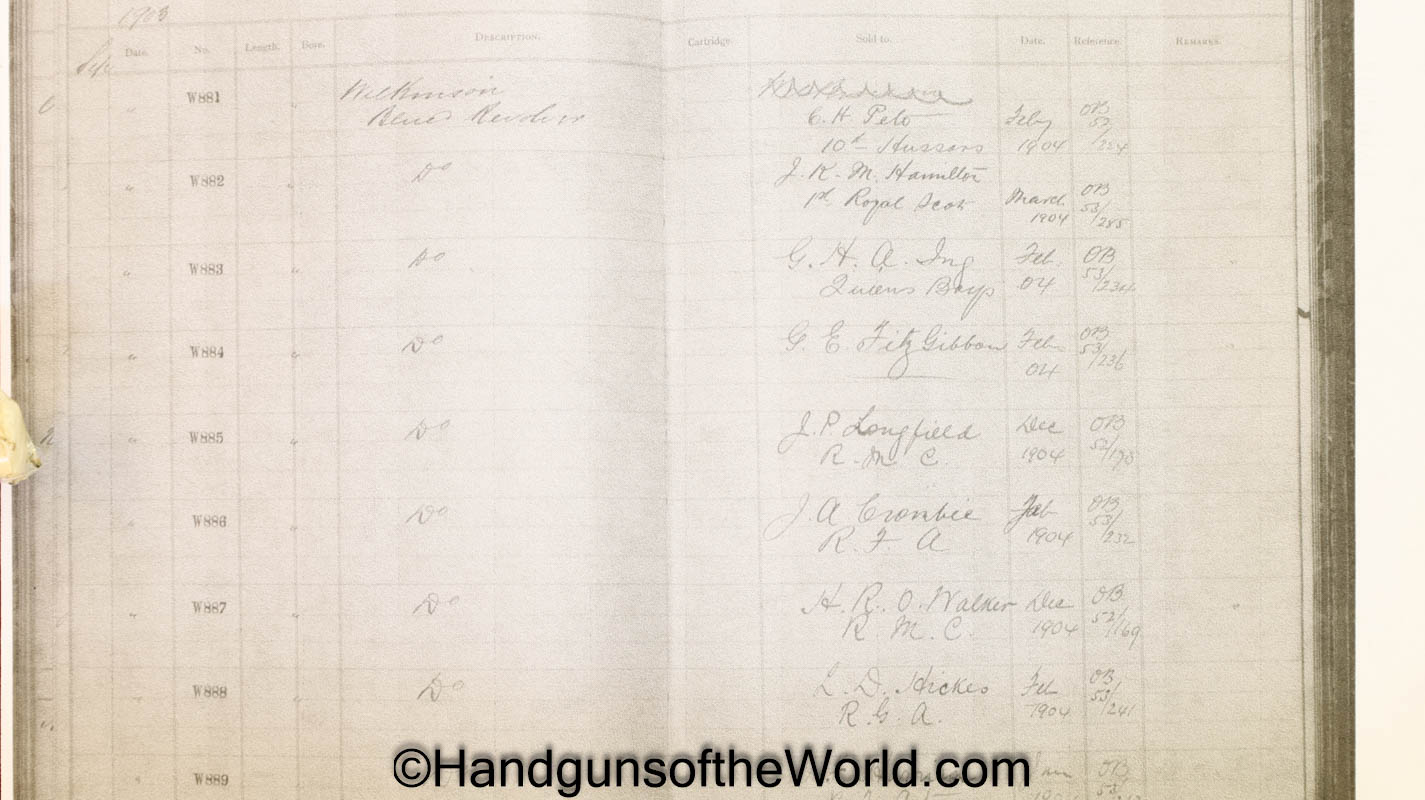 1903
Date. No. Length. Bore. Description. Cartridge. Sold to. Date. Reference. Remarks.
W881 Wilkinson
Blued Revolver C. H. Peto Feby OB
10th Hussars 1904 53/224
W882 Do J. K. M. Hamilton
1st Royal Scots March 1904 OB 53/285
W883 Do G. H. A. Ing Feb. OB
Queens Bays 04 53/234
W884 Do G. E. FitzGibbon Feb OB
04 53/236
W885 Do J. P. Longfield Dec OB
R. M. C. 1904 52/170
W886 Do J. A Crombie Feb OB
R. F. A 1904 53/232
W887 Do H. R. O. Walker Dec OB
R. M. C. 1904 52/1169
W888 Do L. D. Hickes Feb OB
R. G. A. 1904 53/241
W889 OB
53
©HandgunsoftheWorld.com